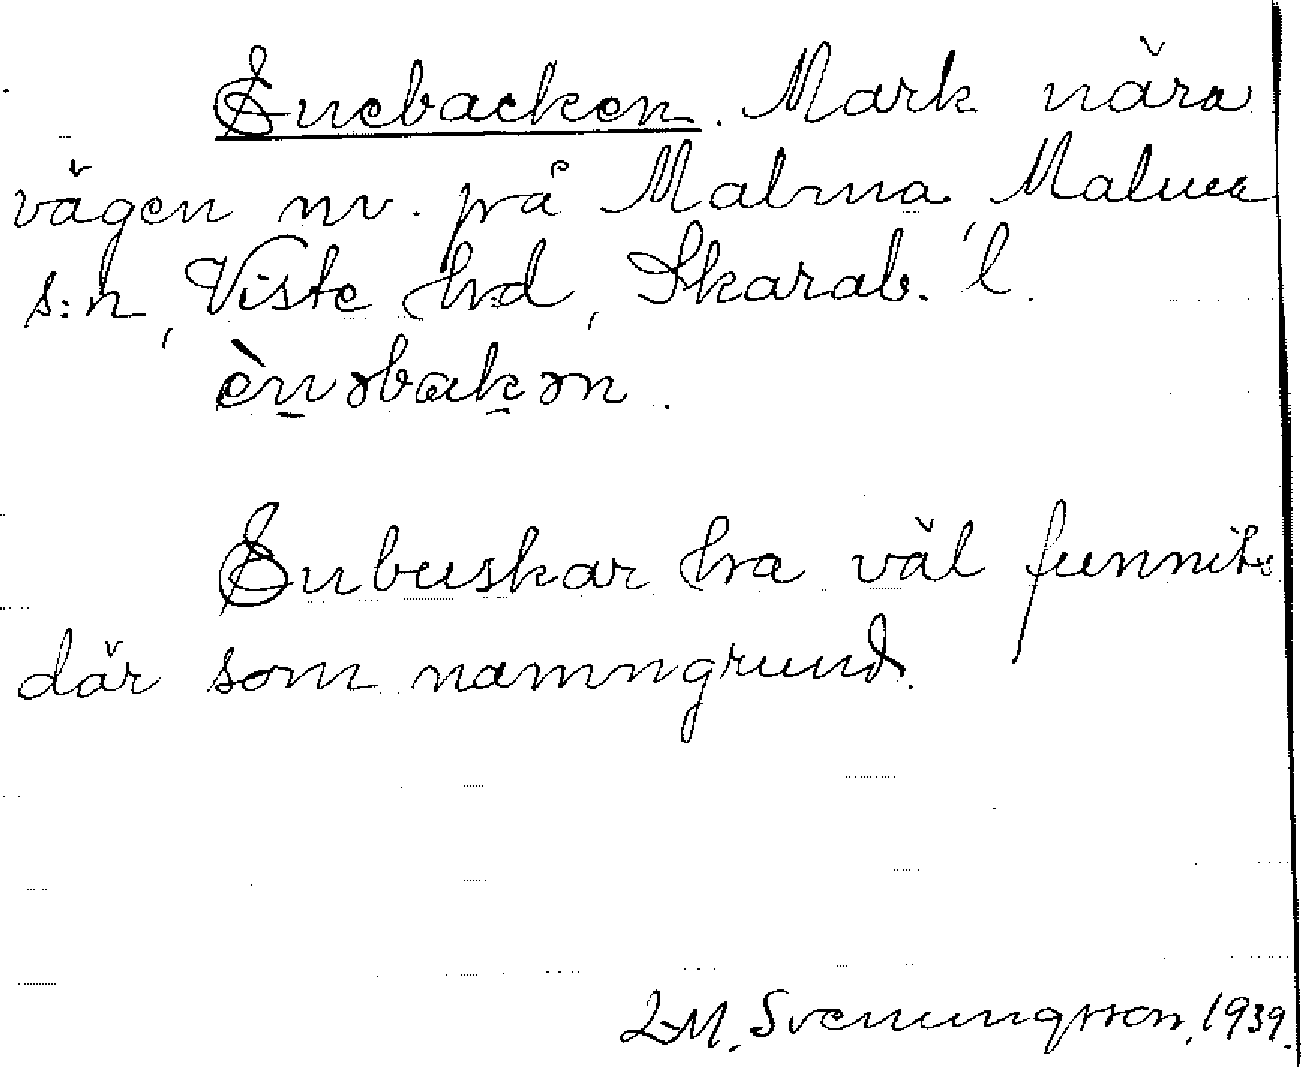 Enebacken. Mark nära
vägen nv. på Malma, Malma
s:n, Viste hd, Skarab. l.
ènəbakən.
Enbuskar ha väl funnits
där som namngrund.
L-M. Svenungsson, 1939.